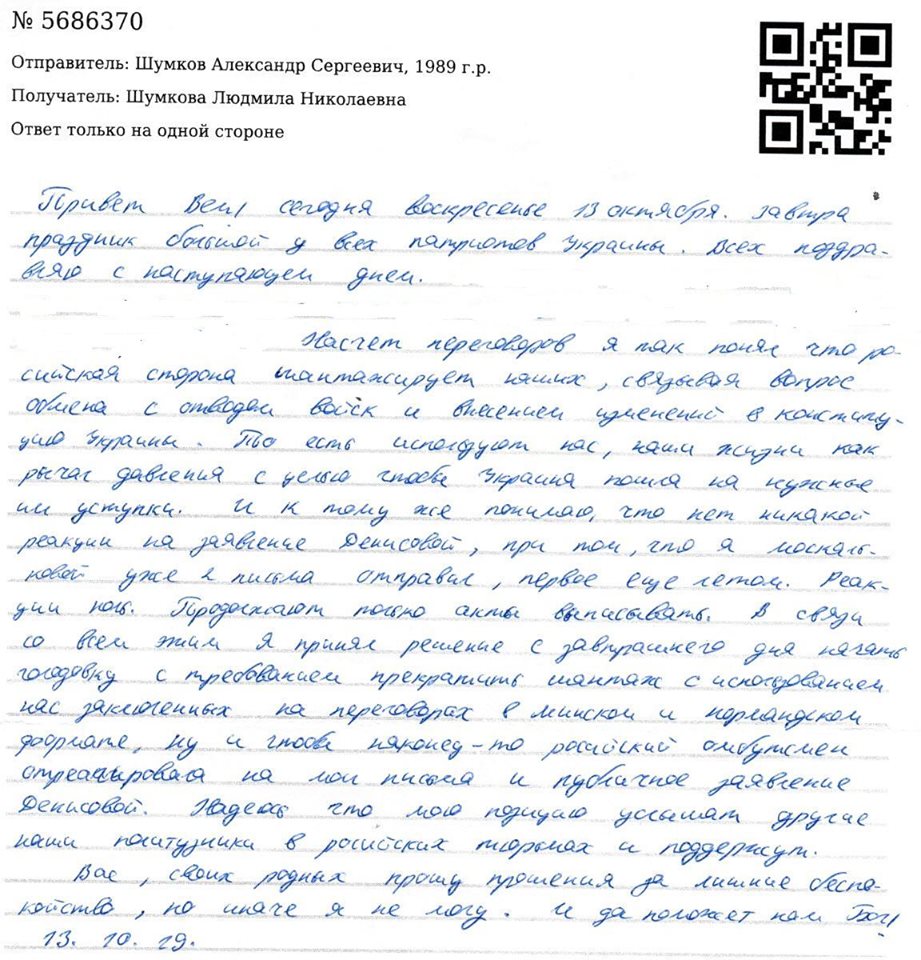 № 5686370
Отправитель: Шумков Александр Сергеевич, 1989 г.р.
Получатель: Шумкова Людмила Николаевна
Ответ только на одной стороне
Привет Всем! сегодня воскресенье 13 октября. завтра
праздник большой у всех патриотов Украины. Всех поздра-
вляю с наступающем днем.
Насчет переговоров я так понял что ро-
сийская сторона шантажирует наших, связывая вопрос
обмена с отводом войск и внесением изменений в конститу-
цию Украины. То есть используют нас, наши жизни как
рычаг давления с целью чтобы Украина пошла на нужные
им уступки. И к тому же понимаю, что нет никакой
реакции на заявление Денисовой, при том, что я москаль-
ковой уже 2 письма отправил, первое еще летом. Реак-
ции ноль. Продолжают только акты выписывать. В связи
со всем этим я принял решение с завтрашнего дня начать
голодовку с требованием прекратить шантаж с использованием
нас заключенных на переговорах в минском и нормандском
формате, ну и чтобы наконец-то російский омбутсмен
отреагировала на мои письма и публичное заявление
Денисовой. Надеюсь что мою позицию услышат другие
наши политузники в російских тюрьмах и поддержут.
Вас, своих родных прошу прощения за лишние беспо-
койство, но иначе я не могу. И да поможет нам Бог!
13. 10. 19.